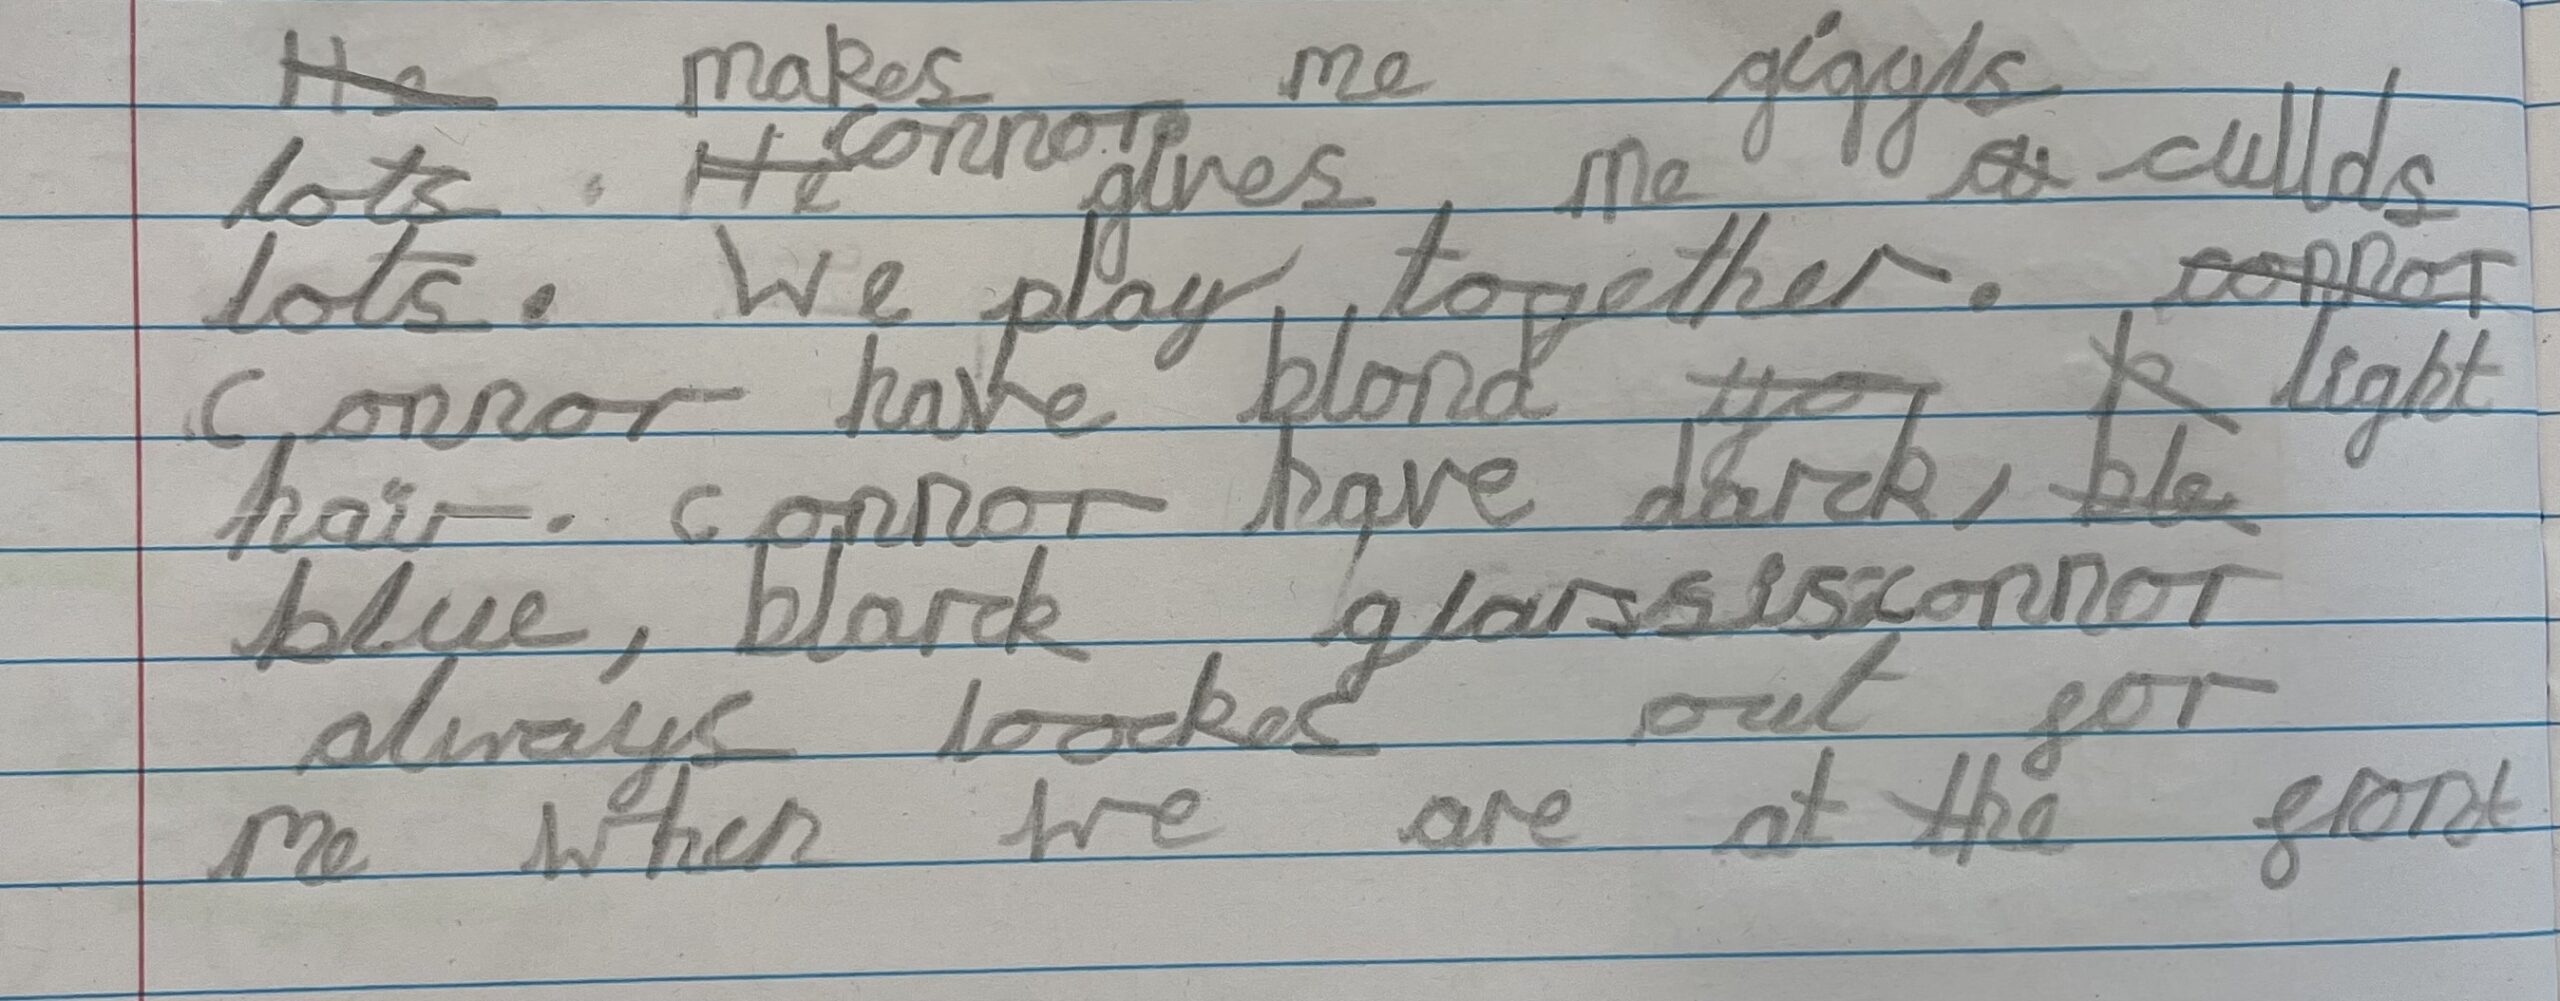 He makes me giggls
lots. He connor gives me a cullds
lots. We play together. connor
connor have blond light
hair. connor have darck, ble
blue, blarck glarssis connor
always loockes out for
me when we are at the front